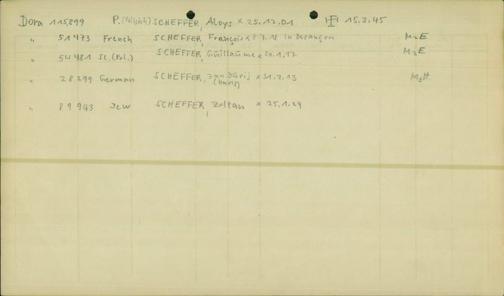 Dora 115,899 P. (Polish) SCHEFFER, Aloys * 25.12.01 15.3.45
" 51473 French SCHEFFER, François * 8.7.18 in Besançon M2E
" 54481 SCHEFFER, Guillaume * 20.1.17 M2E
" 28399 German SCHEFFER, * 31.3.13 M2H
" 89943 Jew SCHEFFER, Zoltan * 25.1.24